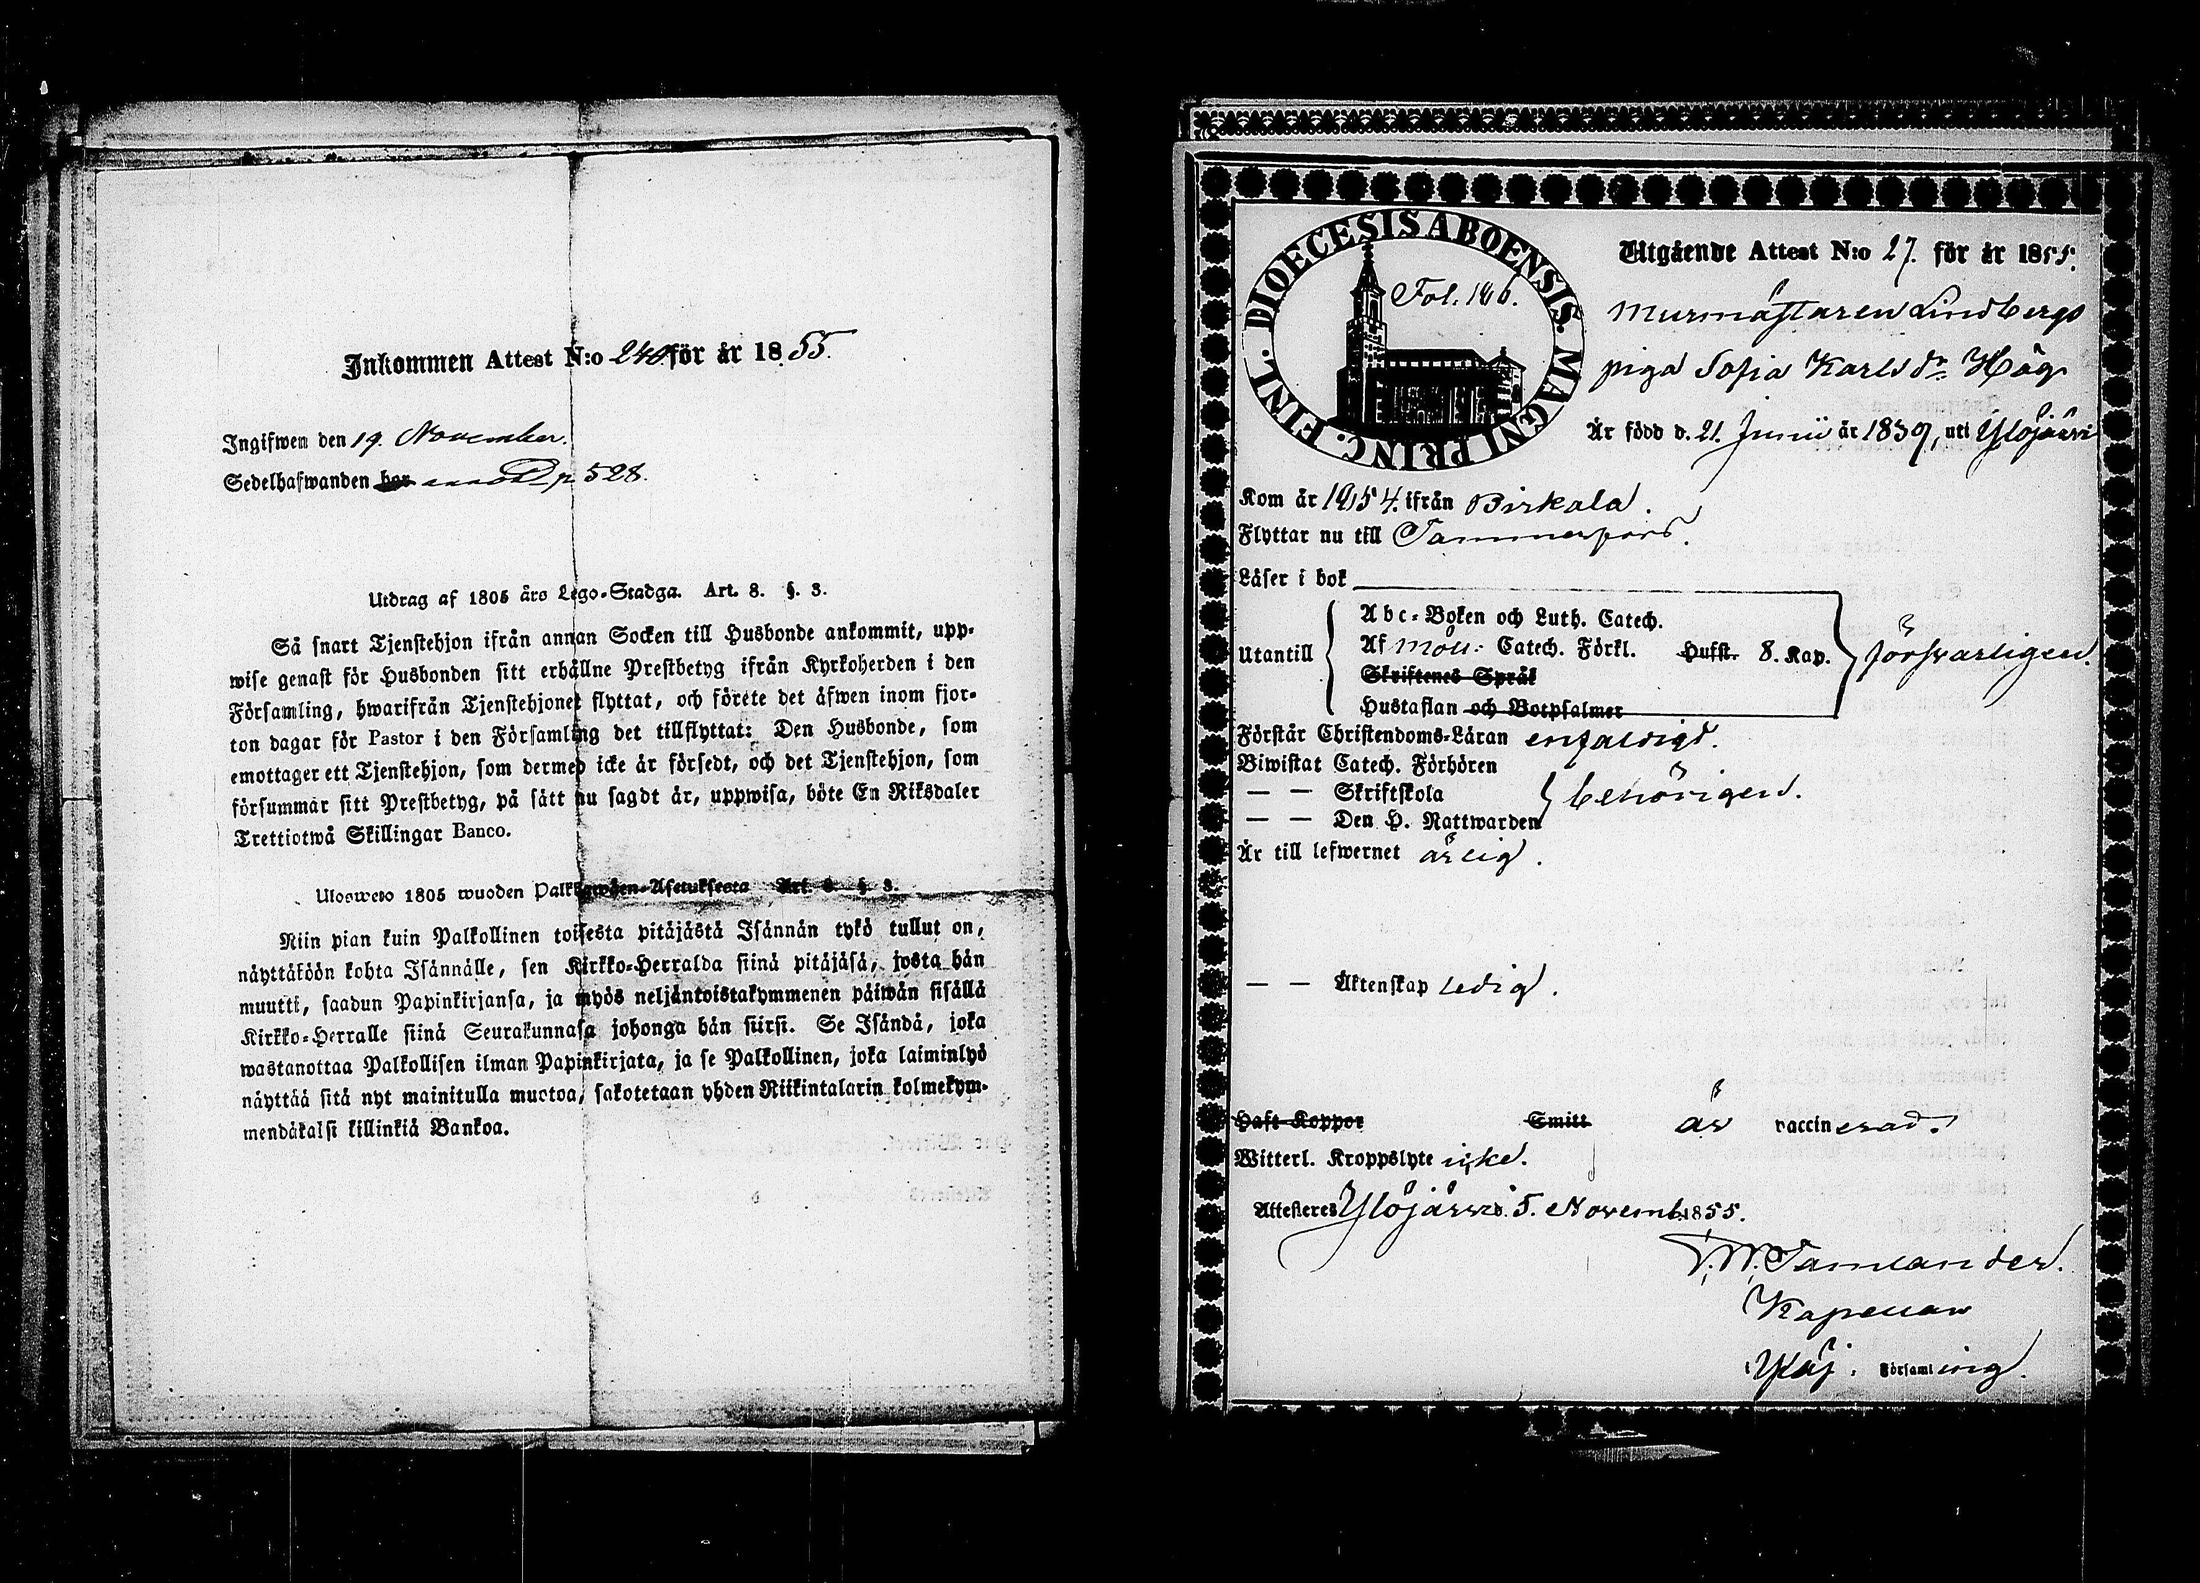 Inkommen Attest N:o 240 för år 1855.
Ingifwen den 19. November.
Sedelhafwanden har p 528.
Utdrag af 1805 års Lego-Stadga. Art. 8. §. 3.
Så snart Tjenstehjon ifrån annan Socken till Husbonde ankommit, upp-
wise genast för Husbonden sitt erhållne Prestbetyg ifrån Kyrkoherden i den
Församling, hwarifrån Tjenstehjonet flyttat, och förete det äfwen inom fjor-
ton dagar för Pastor i den Församling det tillflyttat: Den Husbonde, som
emottager ett Tjenstehjon, som dermed icke är försedt, och det Tjenstehjon, som
försummar sitt Prestbetyg, på sätt nu sagdt är, uppwisa, böte En Riksdaler
Trettiotwå Skillingar Banco.
Ulosweto 1805 wuoden Palkkawäen-Asetuksesta Art. 8. §. 3.
Niin pian kuin Palkollinen toisesta pitäjästä Isännän tykö tullut on,
näyttäköön kohta Isännälle, sen Kirkko-Herralda siinä pitäjäsä, josta hän
muutti, saadun Papinkirjansa, ja myös neljäntoistakymmenen päiwän sisällä
Kirkko-Herralle siinä Seurakunnasa johonga hän siirsi. Se Isändä, joka
wastanottaa Palkollisen ilman Papinkirjata, ja se Palkollinen, joka laiminlyö
näyttää sitä nyt mainitulla muotoa, sakotetaan yhden Riikintalarin kolmekym-
mendäkaksi killinkiä Bankoa.
DIOECESIS ABOENSIS. MAGNI PRINC. FINL.
Fol. 186.
Utgående Attest N:o 27. för år 1855.
Murmästaren Lindbergs
piga Sofia Karlsdr Hög
Är född d. 21. Junii år 1839, uti Ylöjärvi
Kom år 1854. ifrån Birkala.
Flyttar nu till Tammerfors.
Läser i bok
Utantill
Abc-Boken och Luth. Catech.
Af Möll: Catech. Förkl. Hufst. 8. Kap.
Skriftenes Språk
Hustaflan och Botpsalmer
försvarligen.
Förstår Christendoms-Läran enfaldigt.
Biwistat Catech. Förhören
— — Skriftskola
— — Den H. Nattwarden
behörigen.
Är till lefwernet ärlig.
— — Äktenskap ledig.
Haft Koppor Smitt är vaccinerad.
Witterl. Kroppslyte icke.
Attesteres Ylöjärvi d. 5. Novemb. 1855.
Tamlander.
Kapellan
Ylöj. Församling.